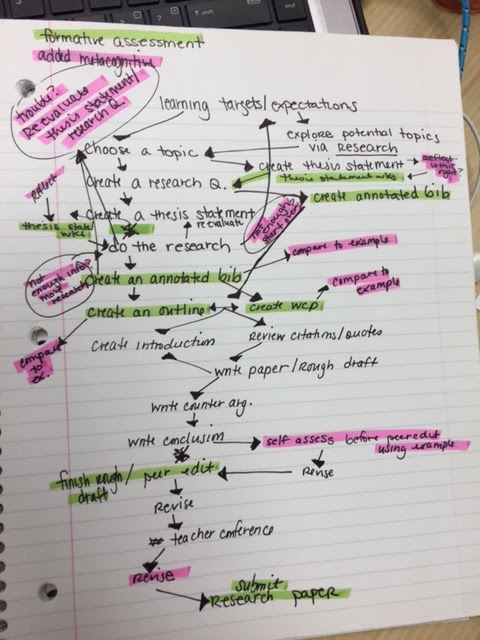 formative assessment
added metacognitive
trouble?
Reevaluate
thesis statement/
research Q.
learning targets/expectations
explore potential topics
via Research
choose a topic
create thesis statement
thesis statement wks
Reflect
is this
right?
create a research Q.
create annotated bib
reflect
create a thesis statement
reevaluate
thesis state
wks
not enough?
start over
do the research
compare to example
not
enough info?
more
research
create an annotated bib
compare to
example
create an outline
create WCP
create introduction
Review citations/quotes
compare
to
ex.
write paper/rough draft
write counter arg.
write conclusion
self assess before peer edit
using example
finish rough/peer edit
draft
revise
revise
teacher conference
revise
submit
research paper